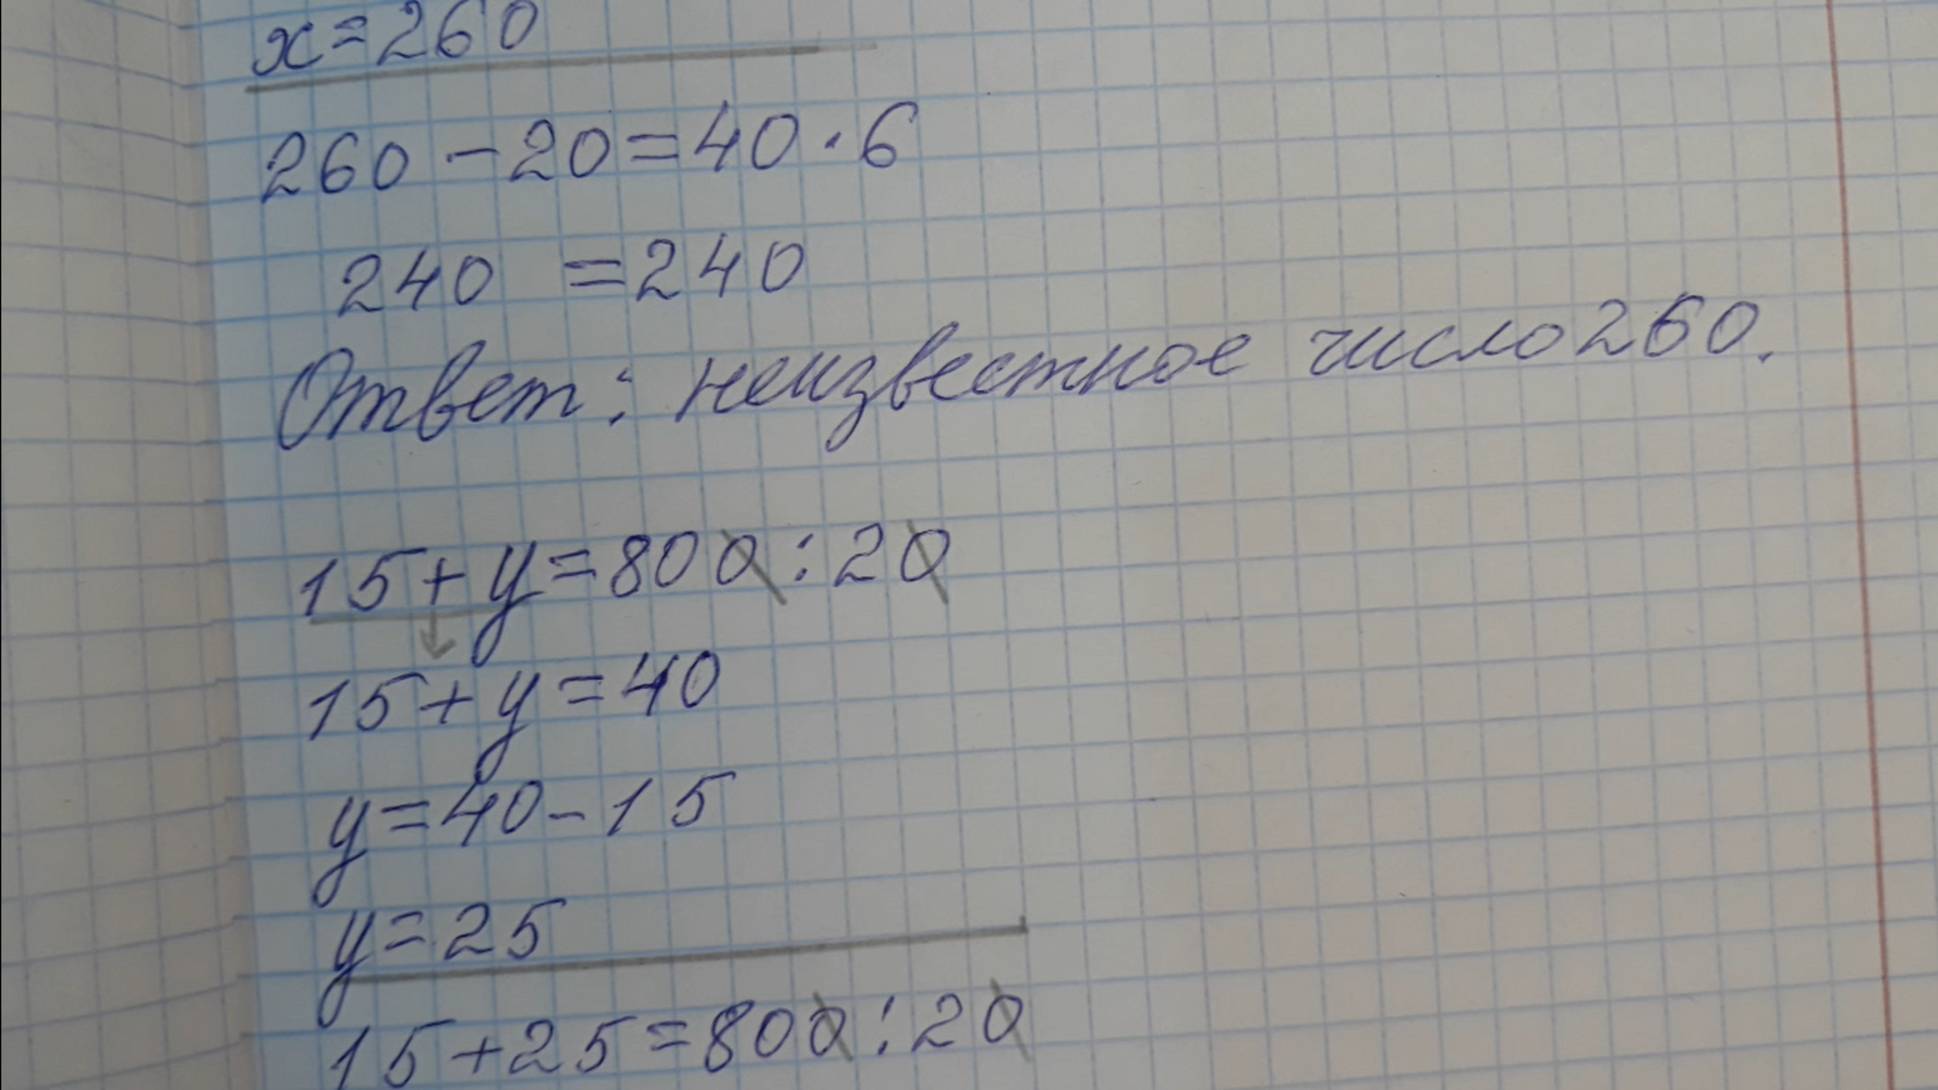 x=260
260-20=40·6
240 =240
Ответ: неизвестное число 260.
15+y=800:20
15+y=40
y=40-15
y=25
15+25=800:20